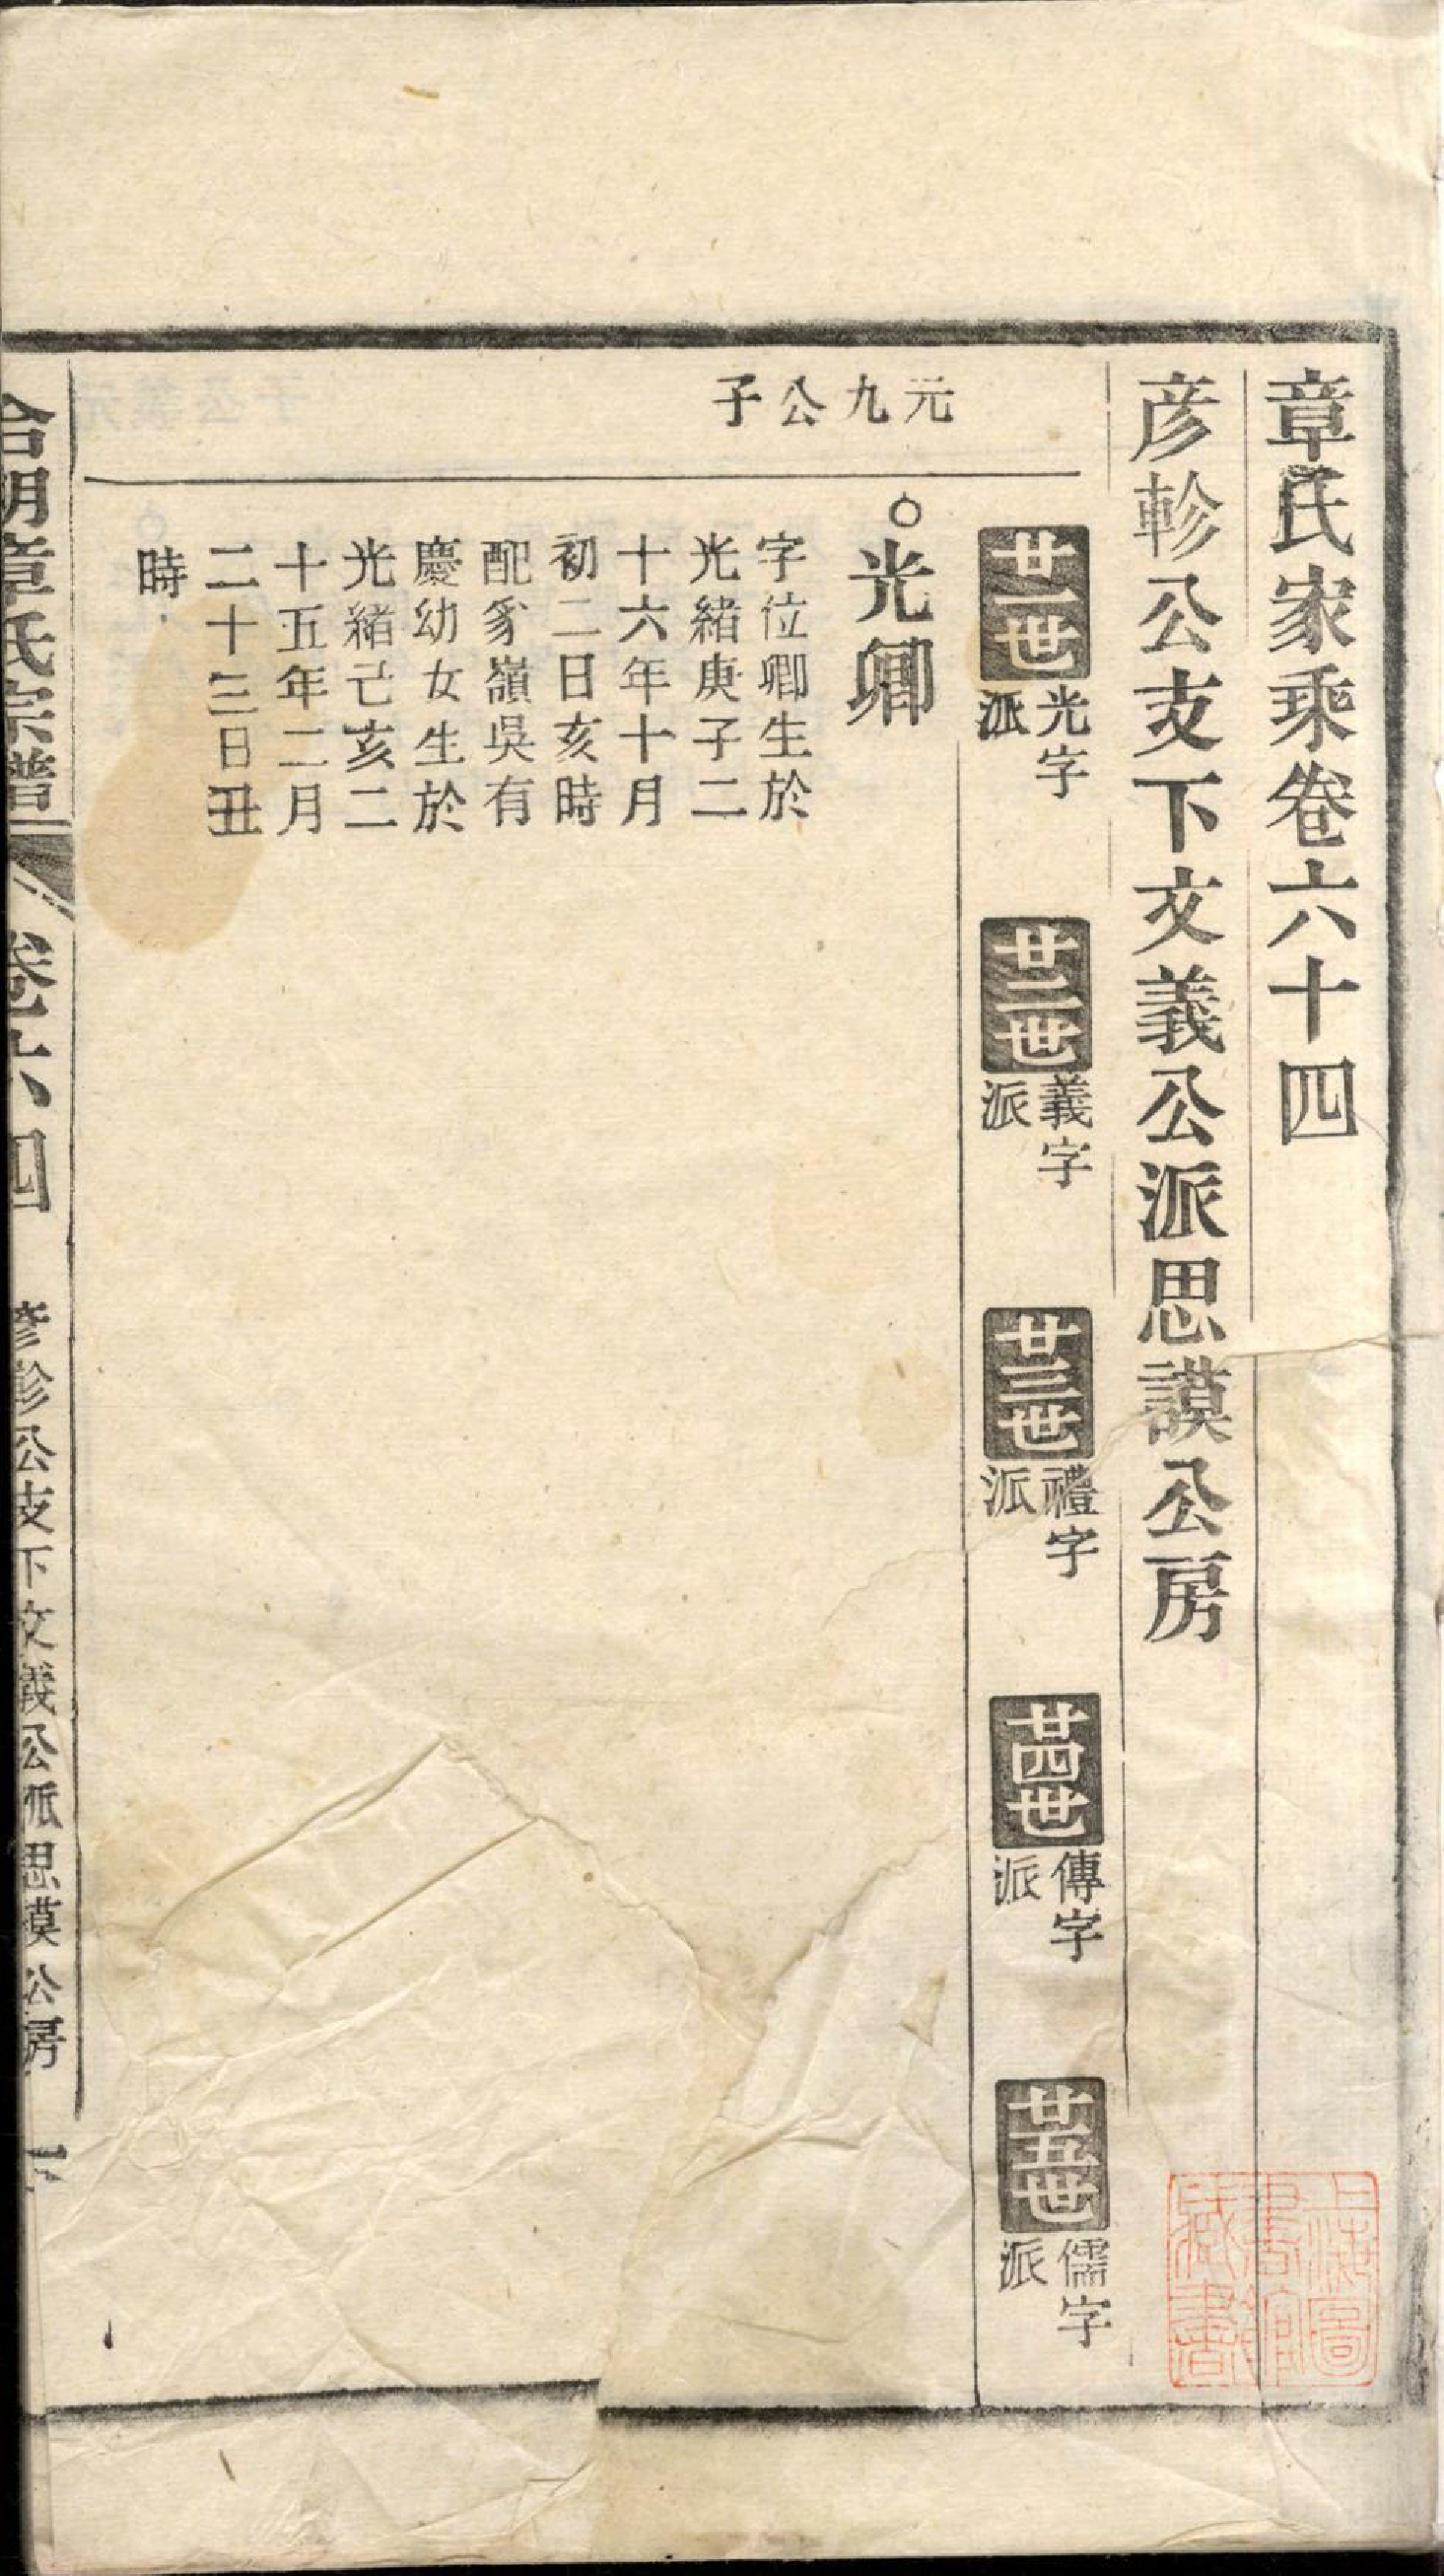 章氏家乘卷六十四
彦軫公支下文義公派思謨公房
廿一世 光字派
廿二世 義字派
廿三世 禮字派
廿四世 傳字派
廿五世 儒字派
元九公子
○光卿
字位卿生於
光緒庚子二
十六年十月
初二日亥時
配豸嶺吳有
慶幼女生於
光緒己亥二
十五年二月
二十三日丑
時
合朗章氏宗譜
卷六四
彦軫公支下文義公派思謨公房
一
上海圖書館藏書